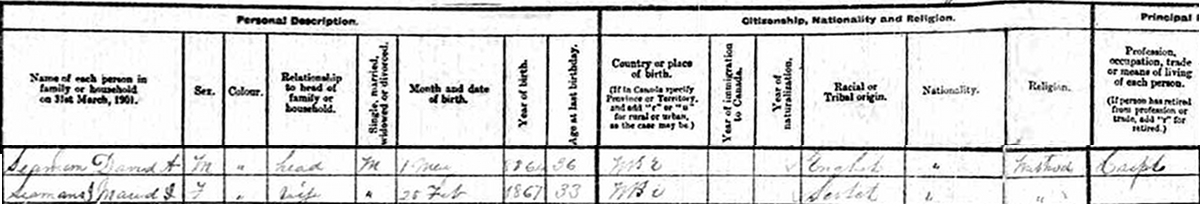 Personal Description. Citizenship, Nationality and Religion. Principal
Name of each person in family or household on 31st March, 1901.
Sex.
Colour.
Relationship to head of family or household.
Single, married, widowed or divorced.
Month and date of birth.
Year of birth.
Age at last birthday.
Country or place of birth.
(If in Canada specify Province or Territory, and add "r" or "u" for rural or urban, as the case may be.)
Year of immigration to Canada.
Year of naturalization.
Racial or Tribal origin.
Nationality.
Religion.
Profession, occupation, trade or means of living of each person.
(If person has retired from profession or trade, add "r" for retired.)
David A M " head M 1 36 English "
Seamans Maud F " wife " 25 Feb 1867 33 " "